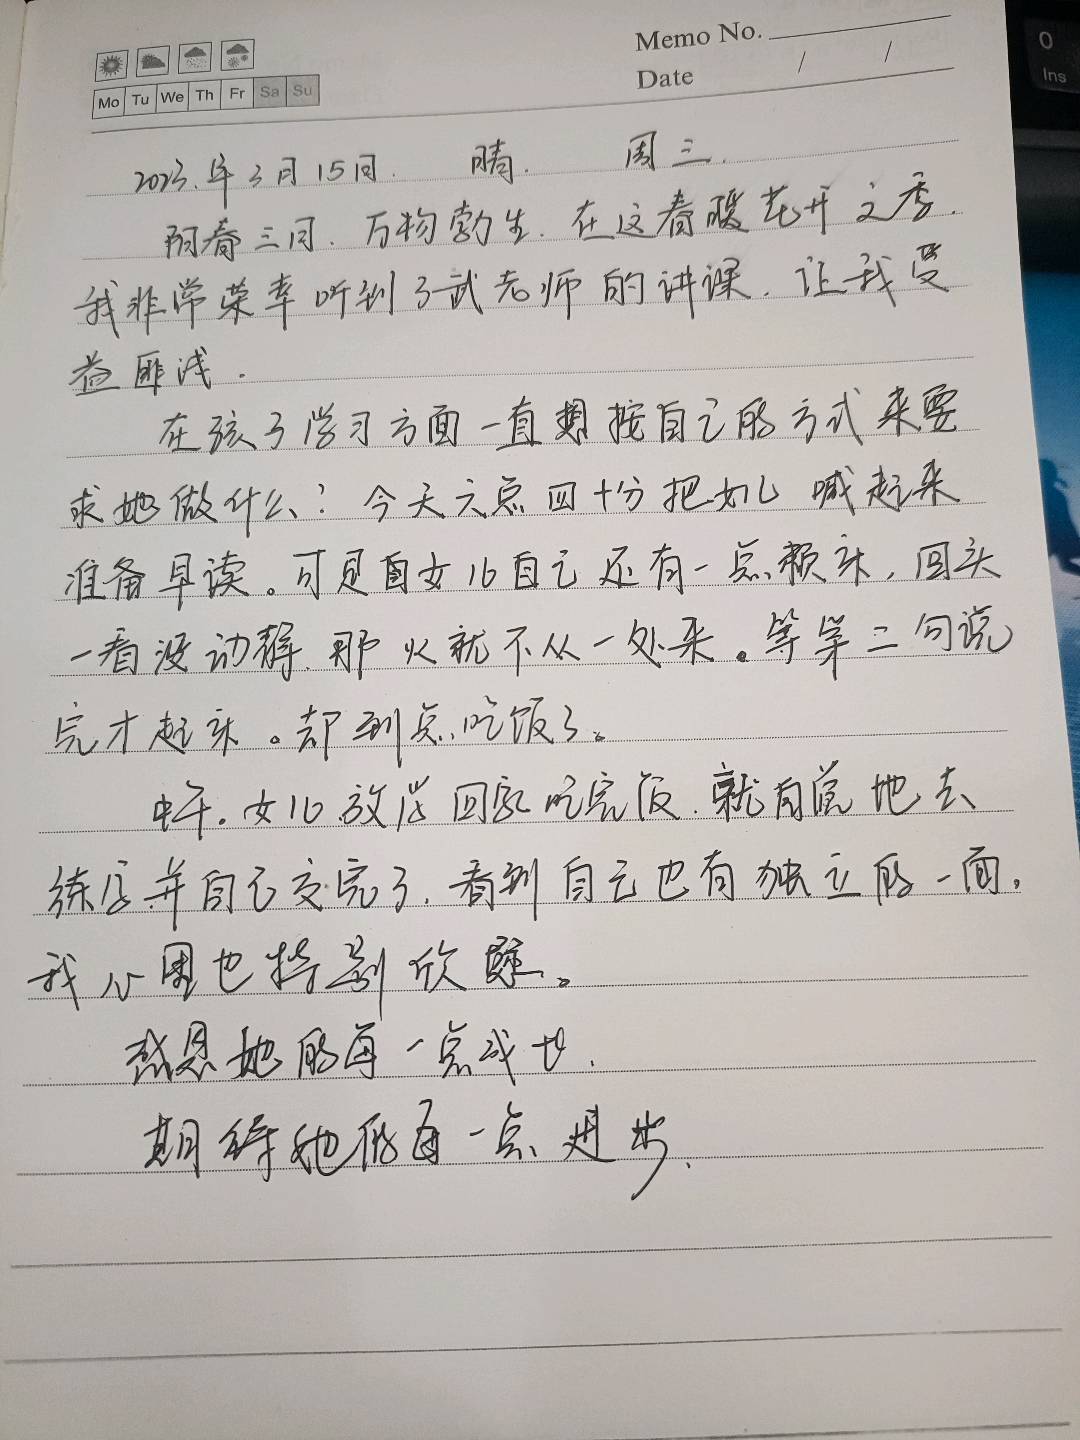 Memo No.
Date / /
Mo Tu We Th Fr Sa Su
0
Ins
2023.年3月15日. 晴. 周三.
阳春三月.万物勃生.在这春暖花开之季.
我非常荣幸听到了武老师的讲课.让我受
益匪浅.
在孩子学习方面一直想按自己的方式来要
求她做什么?今天六点四十分把女儿喊起来
准备早读。可是自女儿自己还有一点赖床,回头
一看没动静.那火就不从一处来。等第二句说
完才起床。却到点吃饭了。
中午。女儿放学回家吃完饭.就自觉地去
练字并自己交完了.看到自己也有独立的一面,
我心里也特别欣慰。
感恩她的每一点成长.
期待她的每一点进步.